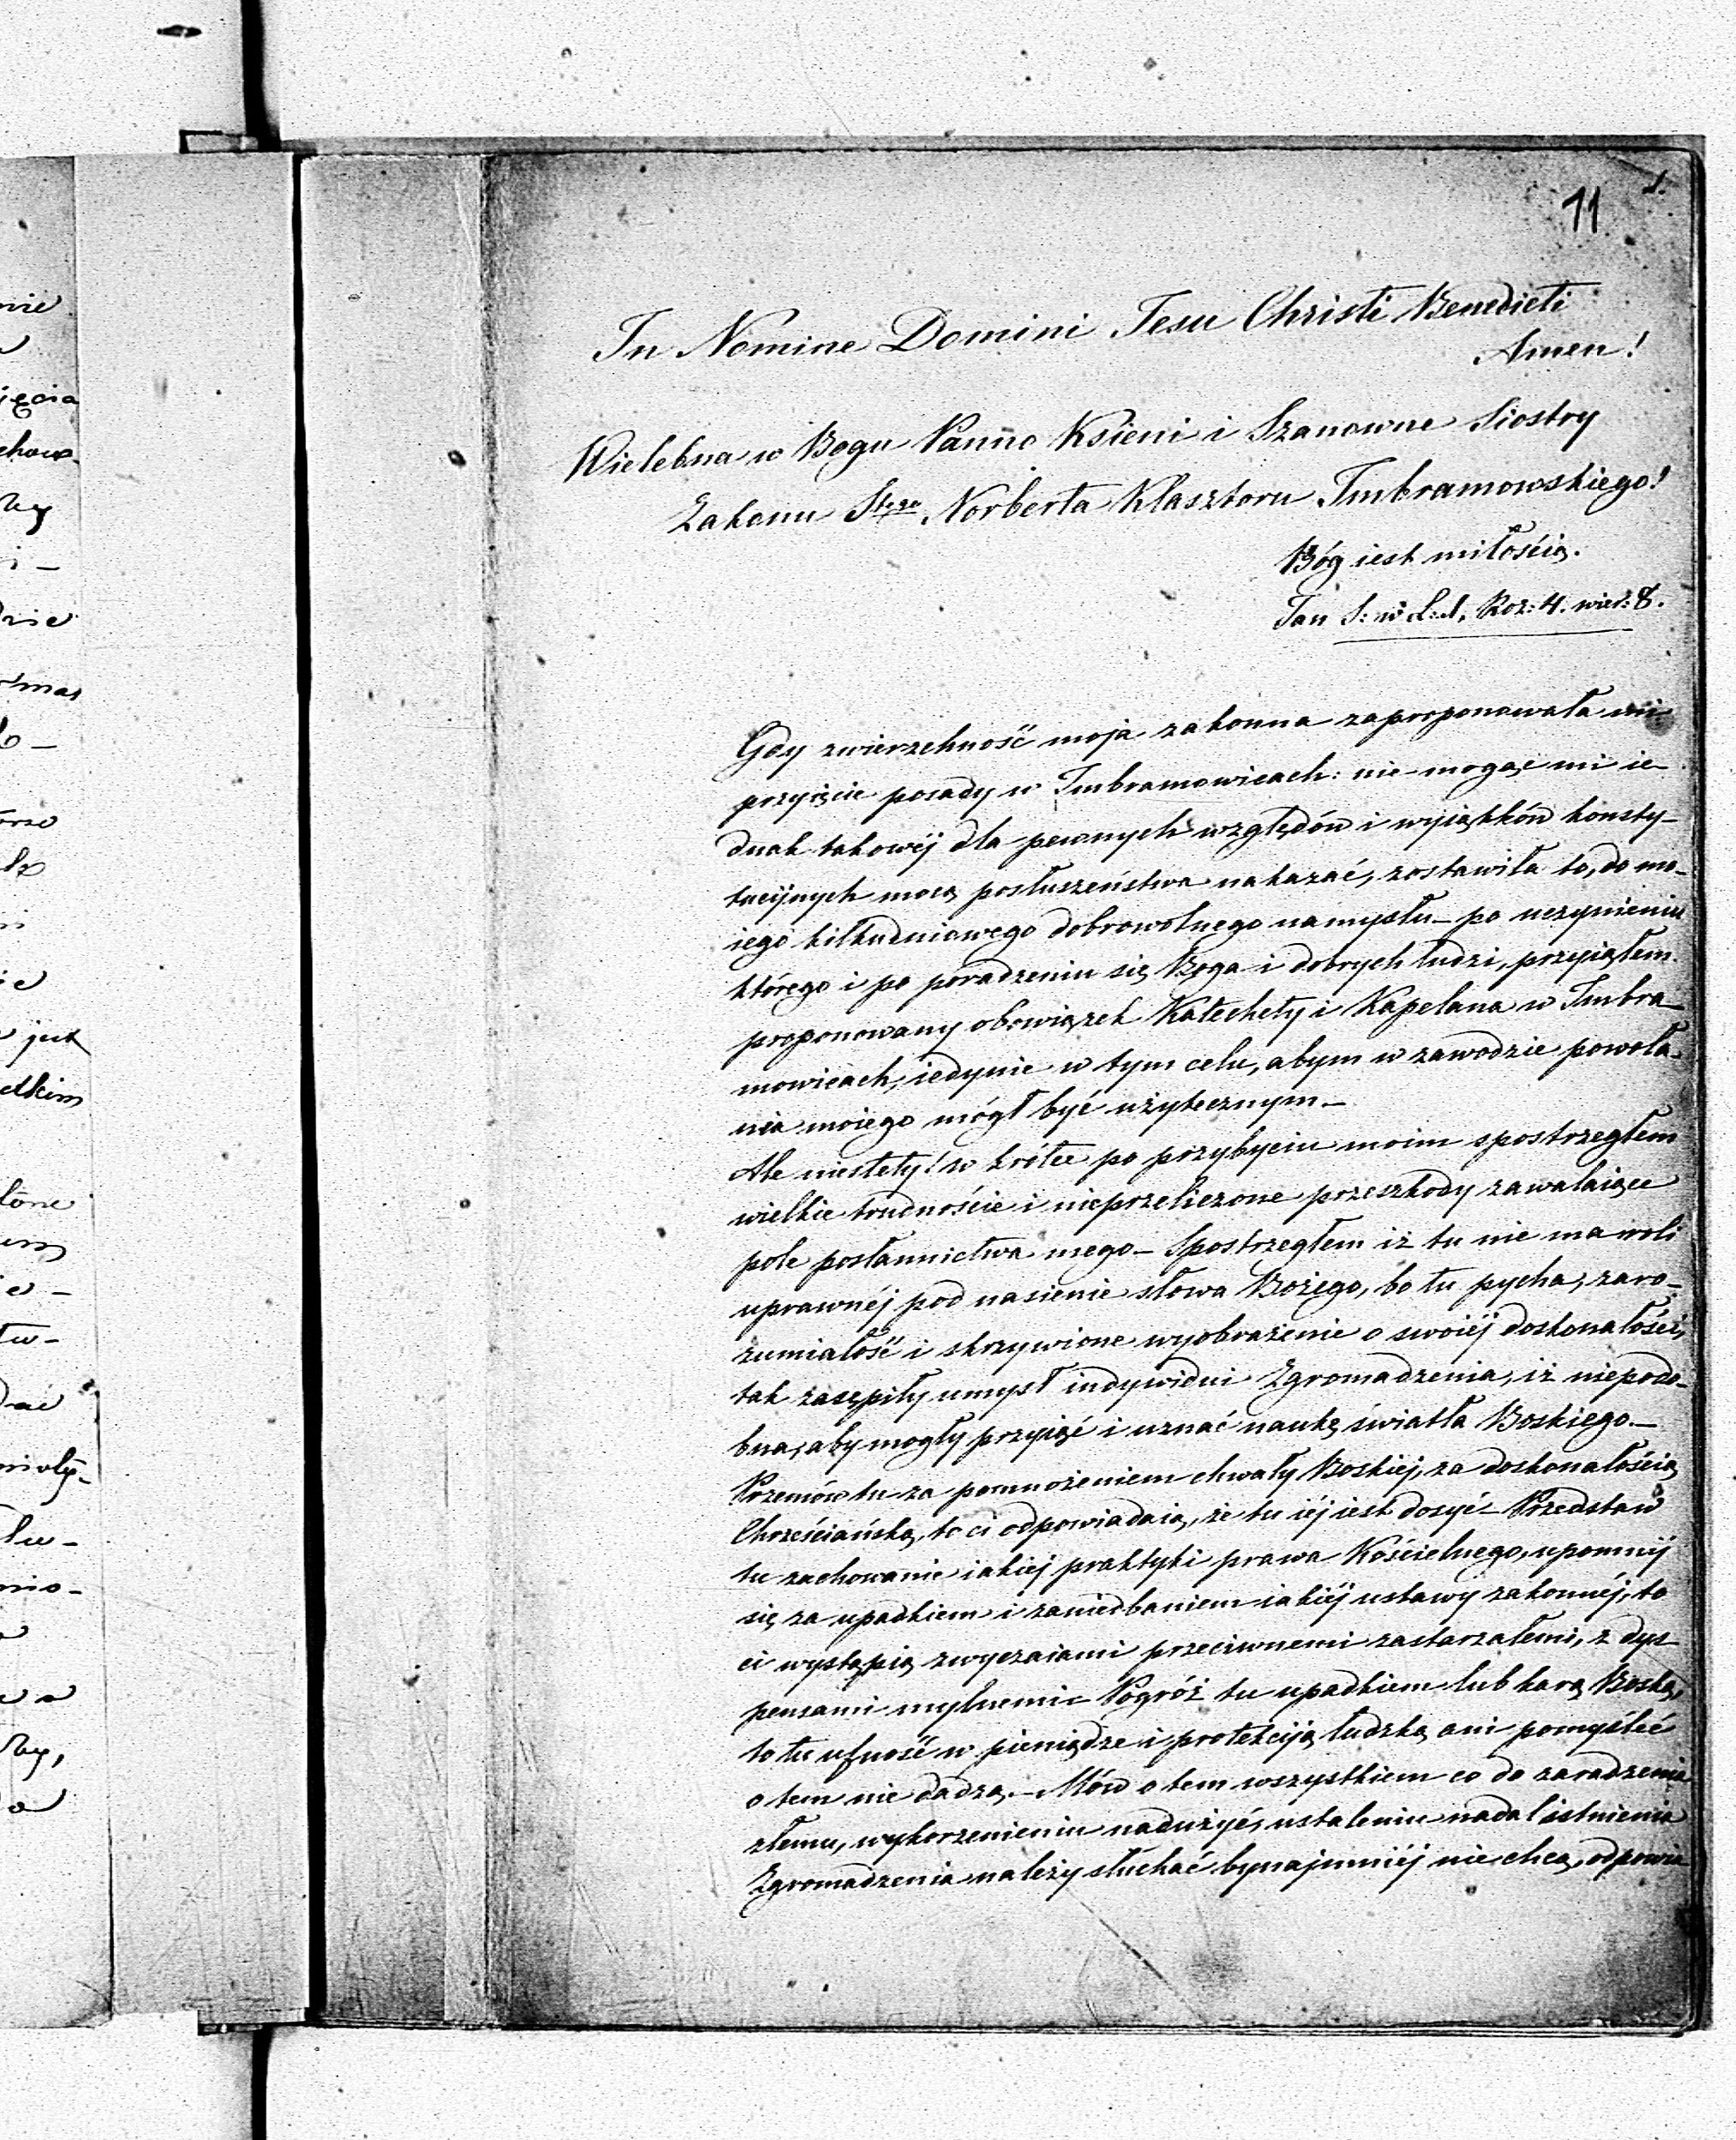 11
1.
In Nomine Domini Jesu Christi Benedicti
Amen!
Wielebna w Bogu Panno Ksieni i Szanowne Siostry
Zakonu Stego Norberta Klasztoru Imbramowskiego!
Bóg iest miłością.
Jan S: w L: 1. Roz: 4. wier: 8.
Gdy zwierzchność moja zakonna zaproponowała mi
przyięcie posady w Imbramowicach: nie mogąc mi ie-
dnak takowéj dla pewnych względów i wyiątków konsty-
tucijnych mocą posłuszeństwa nakazać, zostawiła to, do mo-
iego kilkudniowego dobrowolnego namysłu – po uczynieniu
którego i po poradzeniu się Boga i dobrych ludzi, przyiąłem
proponowany obowiązek Katechety i Kapelana w Imbra-
mowicach, iedynie w tym celu, abym w zawodzie powoła-
nia moiego mógł być użytecznym –
Ale niestety! w krótce po przybyciu moim spostrzegłem
wielkie trudnoście i nieprzeliczone przeszkody zawalaiące
pole posłannictwa mego – Spostrzegłem iż tu nie ma roli
uprawnéj pod nasienie słowa Bożego, bo tu pycha, zaro-
zumiałość i skrzywione wyobrażenie o swoiéj doskonałości,
tak zasępiły umysł indywidui Zgromadzenia, iż niepodo-
bna, aby mogły przyiąć i uznać naukę światła Boskiego. –
Przemów tu za pomnożeniem chwały Boskiej, za doskonałością
Chrześciańską, to ci odpowiadaią, że tu iéj iest dosyć – Przedstaw
tu zachowanie iakiej praktyki prawa Kościelnego, upomnij
się za upadkiem i zaniedbaniem iakiéj ustawy zakonnéj, to
ci wystąpią zwyczaiami przeciwnemi zastarzałemi, z dys-
pensami mylnemi – Pogróź tu upadkiem lub karą Boską,
to tu ufność w pieniądze i protekciją ludzką ani pomyśleć
o tem nie dadzą. – Mów o tem wszystkiem co do zaradzenia
złemu, wykorzenieniu nadużyć, ustaleniu nadal istnienia
Zgromadzenia należy słuchać bynajmniéj nie chcą, odpowia-